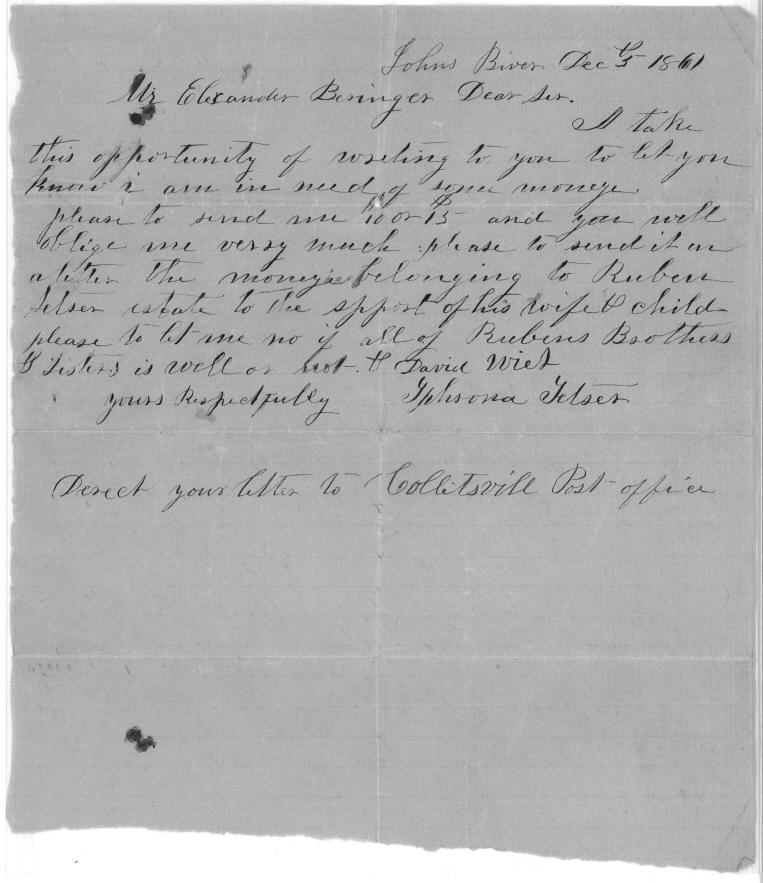 Johns River Dec 5th 1861
Mr Elexander Beringer Dear Sir.
I take
this opportunity of writing to you to let you
know i am in need of some money
please to send me $10 or $15 and you will
oblige me verry much please to send it in
a letter the money belonging to Ruben
Setser estate to the spport of his wife & child
please to let me no if all of Rubens Brothers
& Sisters is well or not. & David
yours Respectfully Setser
Derect your letter to Collitsvill Post office